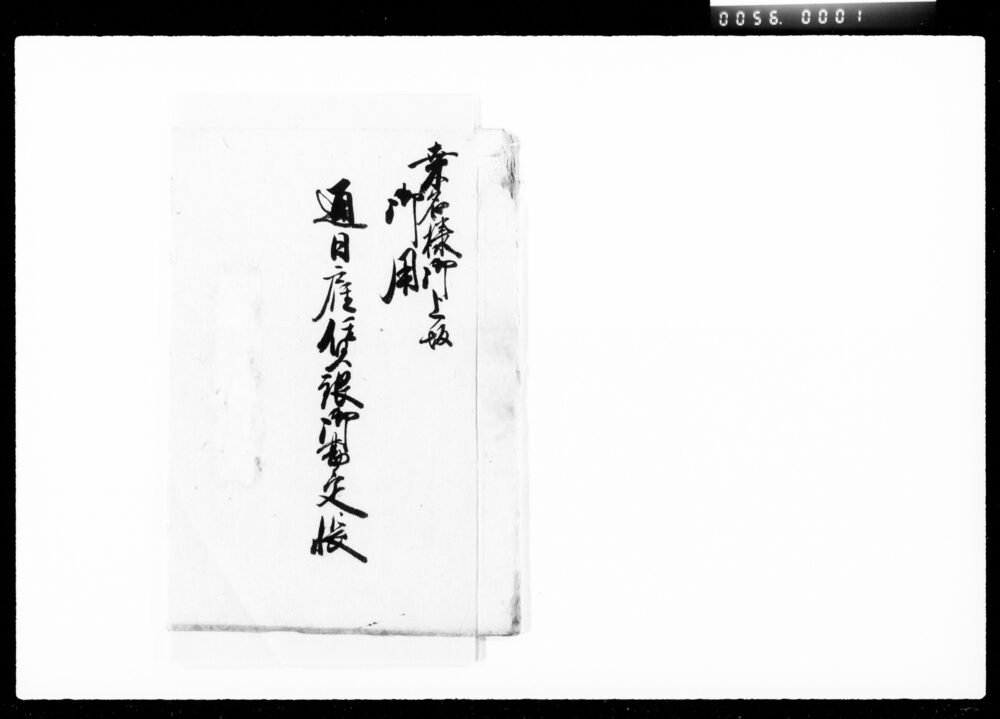 0056.0001
桑名様御上坂
御用
通日雇賃銀御勘定帳